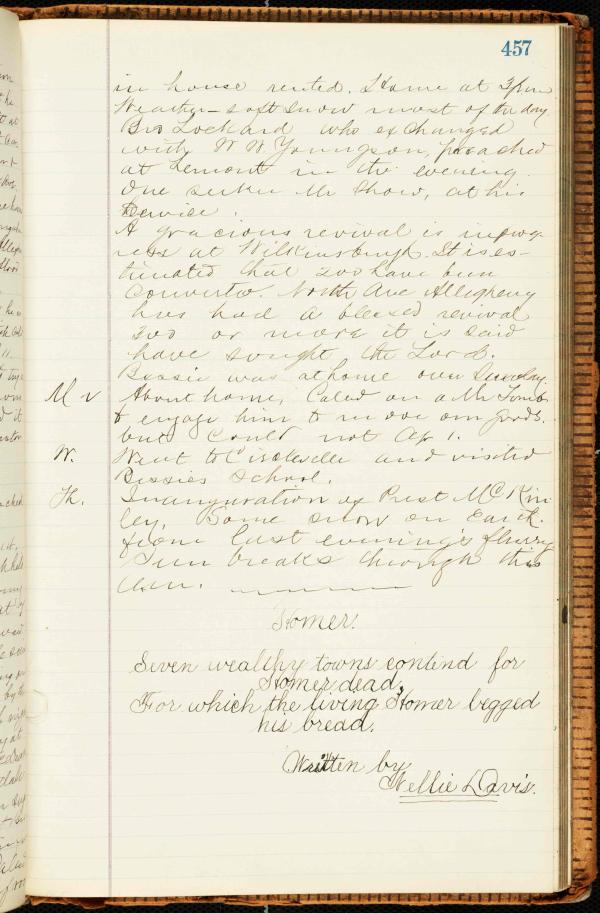 457
in house rented. Home at 3 pm
Weather – soft snow most of the day
Bro Lockard who exchanged
with W W Youngson, preached
at Lemont in the evening.
One seeker Mr Show, at his
service.
A gracious revival is in prog-
ress at Wilkinsburgh. It is es-
timated that 200 have been
converted. North Ave Allegheny
has had a blessed revival
300 or more it is said
have sought the Lord.
Bessie was at home over Sunday.
M About home, Caled on a Mr
to engage him to move our goods.
but could not Ap 1.
W. Went to Circleville and visited
Bessies School.
Th. Inauguration of Prest McKin
ley, Some snow on Earth
from last evenings flurry
Sun breaks through this
Homer.
Seven wealthy towns contend for
Homer dead,
For which the living Homer begged
his bread.
Written by
Nellie Davis.